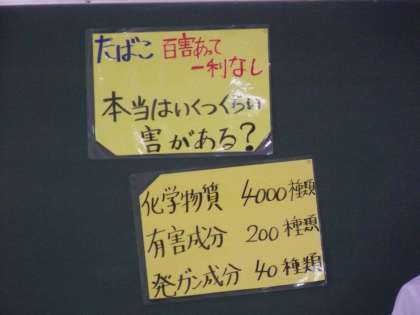 たばこ 百害あって
一利なし
本当はいくつくらい
害がある?
化学物質 4000種類
有害成分 200種類
発ガン成分 40種類